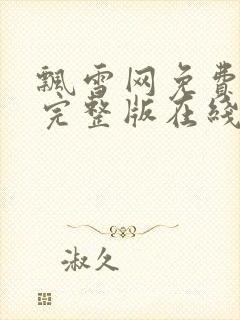 飘雪网免费
完整版在线
淑久